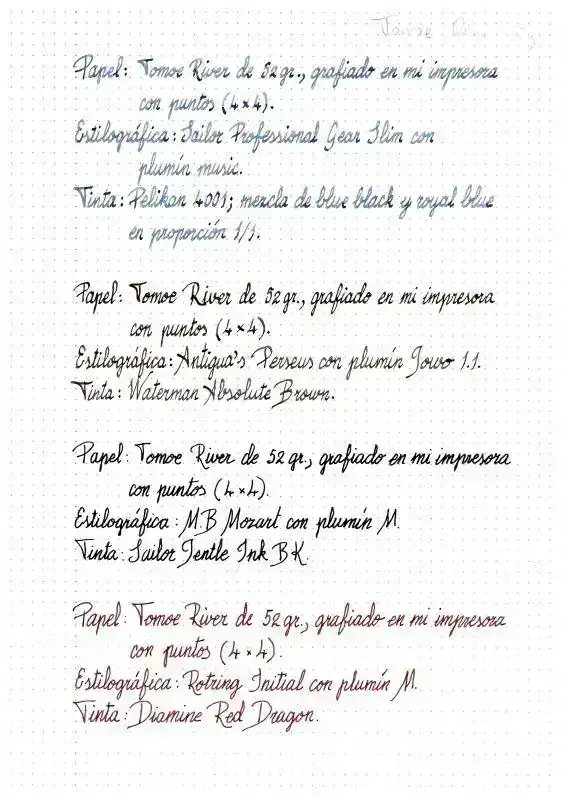 Papel: Tomoe River de 52 gr., grafiado en mi impresora
con puntos (4×4).
Estilográfica: Sailor Professional Gear Slim con
plumín music.
Tinta: Pelikan 4001; mezcla de blue black y royal blue
en proporción 1/1.
Papel: Tomoe River de 52 gr., grafiado en mi impresora
con puntos (4×4).
Estilográfica: Antigua's Perseus con plumín Jowo 1.1.
Tinta: Waterman Absolute Brown.
Papel: Tomoe River de 52 gr., grafiado en mi impresora
con puntos (4×4).
Estilográfica: M.B Mozart con plumín M.
Tinta: Sailor Jentle Ink BK.
Papel: Tomoe River de 52 gr., grafiado en mi impresora
con puntos (4×4).
Estilográfica: Rotring Initial con plumín M.
Tinta: Diamine Red Dragon.